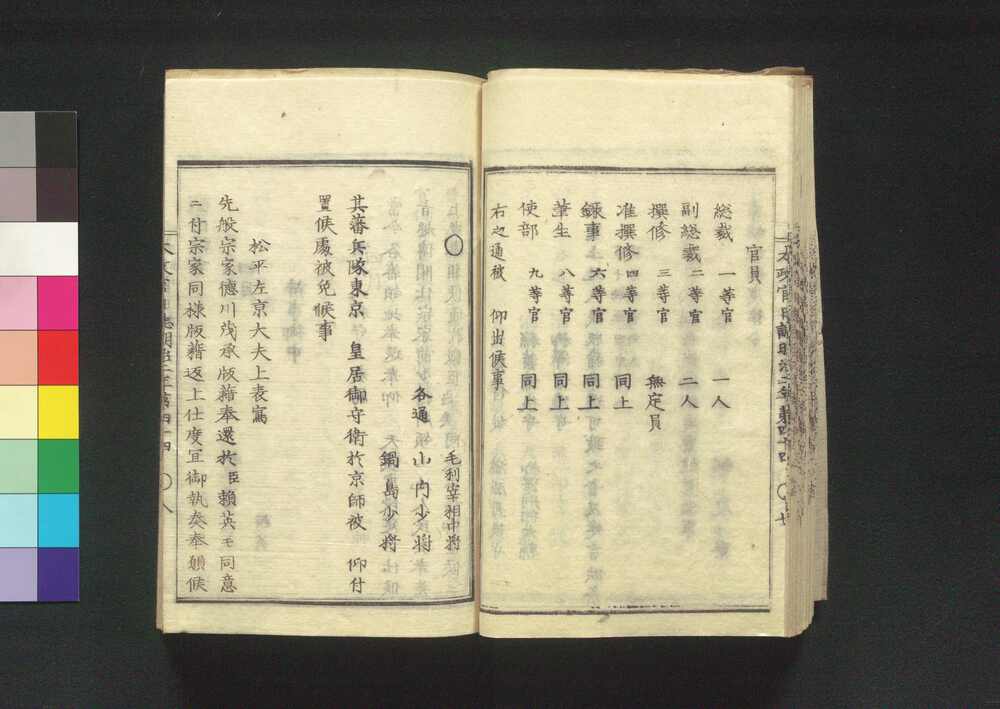 官員
総裁 一等官 一人
副総裁 二等官 二人
撰修 三等官 無定員
准撰修 四等官 同上
録事 六等官 同上
筆生 八等官 同上
使部 九等官 同上
右之通被 仰出候事
○
毛利宰相中将
各通 山内少将
鍋島少将
其藩兵隊東京 皇居御守衛於京師被 仰付
置候處被免候事
松平左京大夫上表寫
先般宗家徳川茂承版籍奉還於臣頼英モ同意
ニ付宗家同様版籍返上仕度冝御執奏奉願候